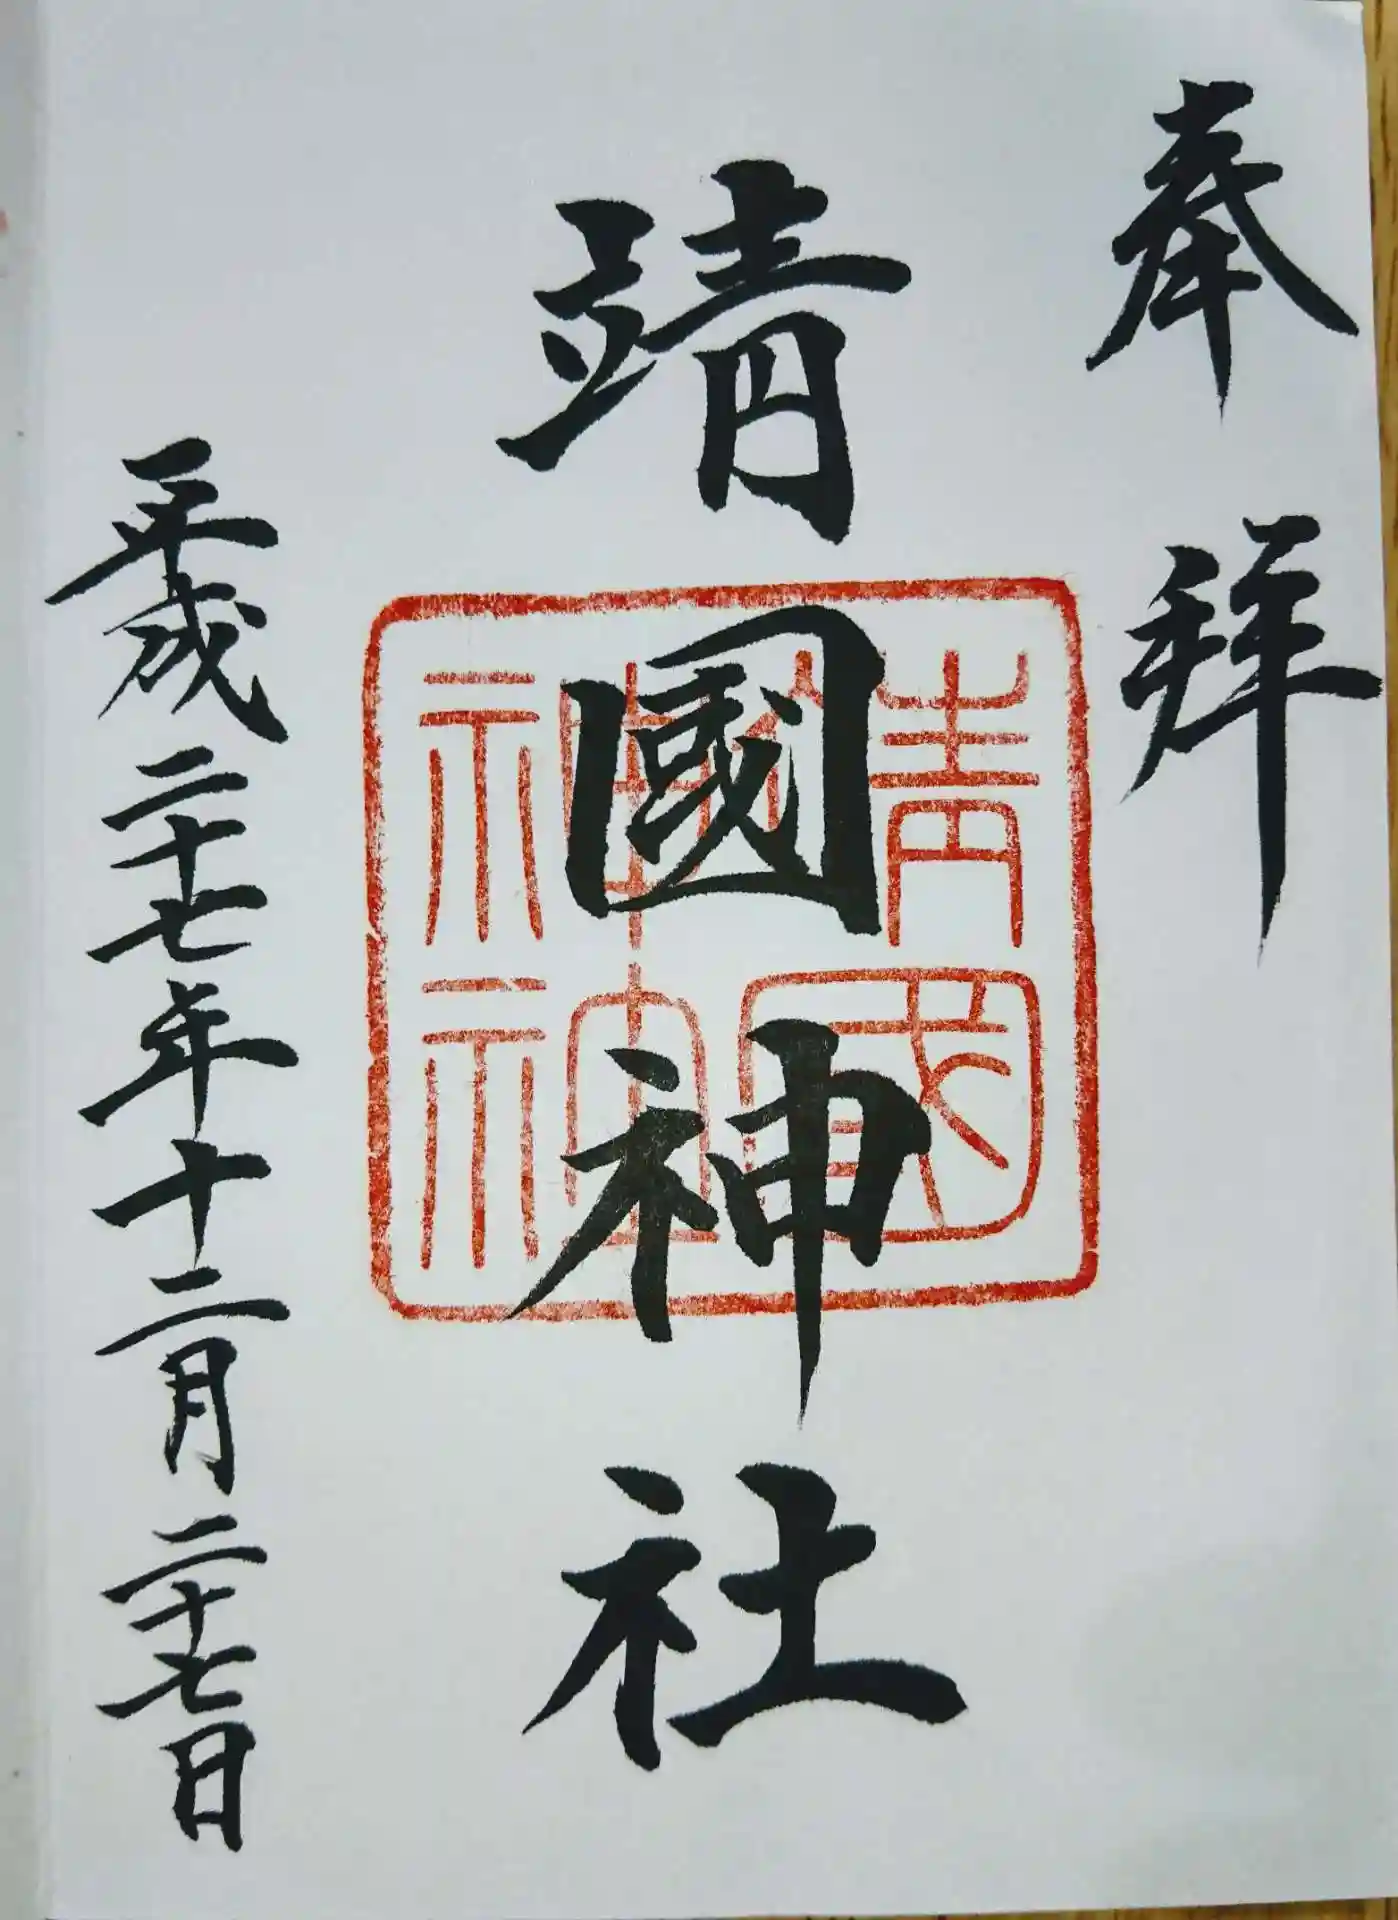 奉拜
靖國神社
平成二十七年十二月二十七日
靖國
神社